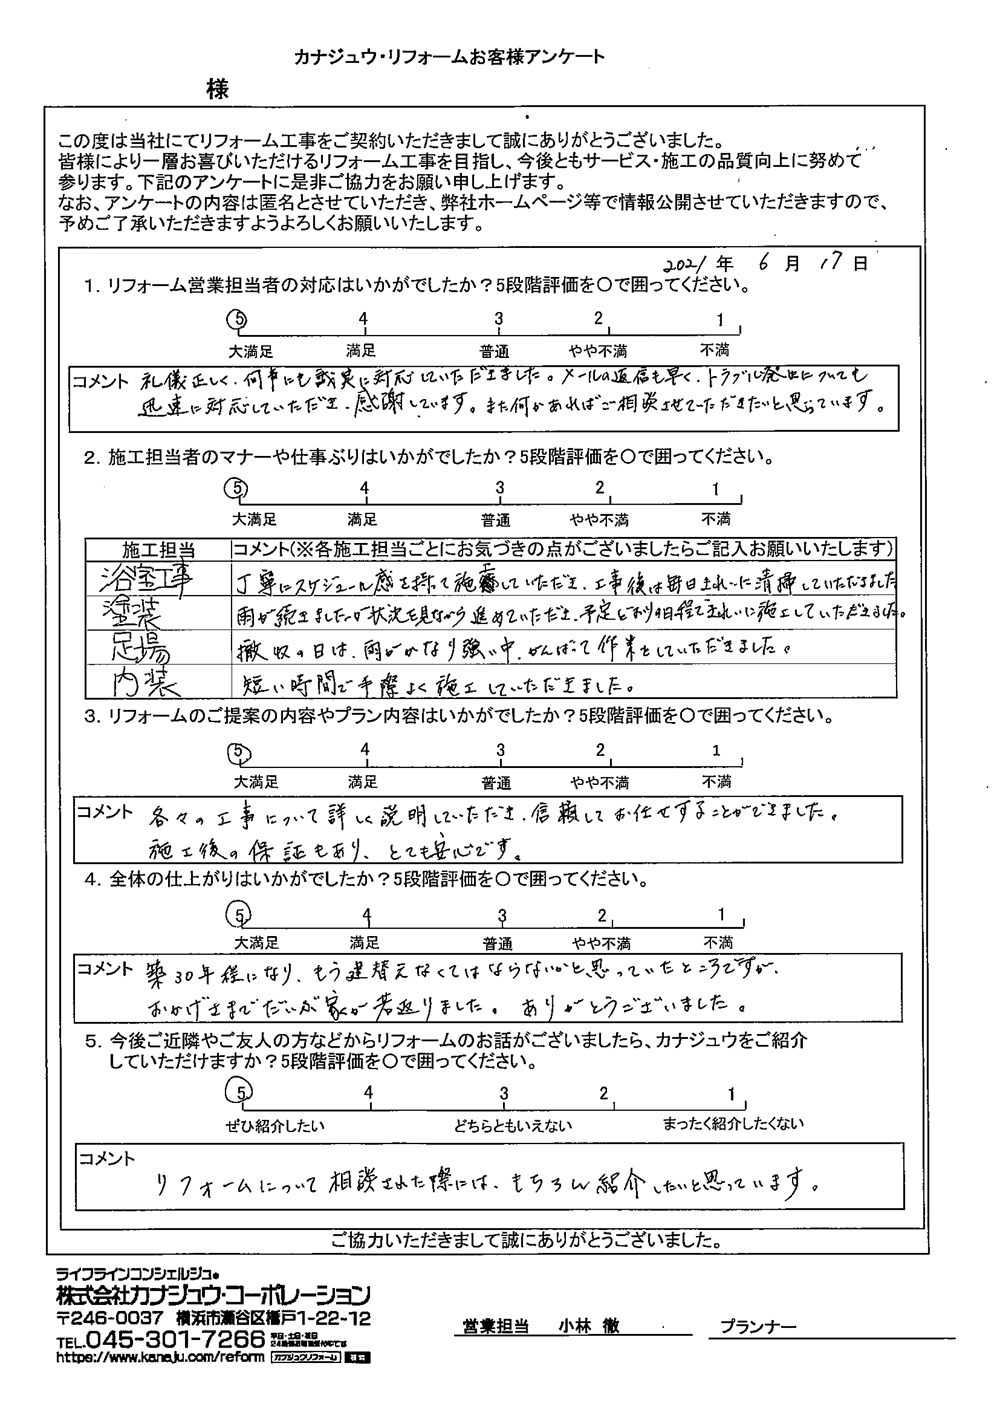 カナジュウ・リフォームお客様アンケート
様
この度は当社にてリフォーム工事をご契約いただきまして誠にありがとうございました。
皆様により一層お喜びいただけるリフォーム工事を目指し、今後ともサービス・施工の品質向上に努めて
参ります。下記のアンケートに是非ご協力をお願い申し上げます。
なお、アンケートの内容は匿名とさせていただき、弊社ホームページ等で情報公開させていただきますので、
予めご了承いただきますようよろしくお願いいたします。
2021年 6月 17日
1. リフォーム営業担当者の対応はいかがでしたか?5段階評価を〇で囲ってください。
5 4 3 2 1
大満足 満足 普通 やや不満 不満
コメント 礼儀正しく、何事にも誠実に対応していただきました。メールの返信も早く、トラブル発生についても
迅速に対応していただき、感謝しています。また何かあればご相談させていただきたいと思っています。
2. 施工担当者のマナーや仕事ぶりはいかがでしたか?5段階評価を〇で囲ってください。
5 4 3 2 1
大満足 満足 普通 やや不満 不満
施工担当 コメント(※各施工担当ごとにお気づきの点がございましたらご記入お願いいたします)
浴室工事 丁寧にスケジュール感を持って施工していただき、工事後は毎日きれいに清掃していただきました
塗装 雨が続きましたが状況を見ながら進めていただき、予定どおり日程できれいに施工していただきました。
足場 撤収の日は、雨がかなり強い中、がんばって作業をしていただきました。
内装 短い時間で手際よく施工していただきました。
3. リフォームのご提案の内容やプラン内容はいかがでしたか?5段階評価を〇で囲ってください。
5 4 3 2 1
大満足 満足 普通 やや不満 不満
コメント 各々の工事について詳しく説明していただき、信頼してお任せすることができました。
施工後の保証もあり、とても安心です。
4. 全体の仕上がりはいかがでしたか?5段階評価を〇で囲ってください。
5 4 3 2 1
大満足 満足 普通 やや不満 不満
コメント 築30年程になり、もう建替えなくてはならないかと思っていたところですが、
おかげさまでだいぶ家が若返りました。ありがとうございました。
5. 今後ご近隣やご友人の方などからリフォームのお話がございましたら、カナジュウをご紹介
していただけますか?5段階評価を〇で囲ってください。
5 4 3 2 1
ぜひ紹介したい どちらともいえない まったく紹介したくない
コメント
リフォームについて相談された際には、もちろん紹介したいと思っています。
ご協力いただきまして誠にありがとうございました。
ライフラインコンシェルジュ。
株式会社カナジュウ・コーポレーション
〒246-0037 横浜市瀬谷区橋戸1-22-12
TEL.045-301-7266 平日・土日・祝日
https://www.kanaju.com/reform カナジュウリフォーム 検索
営業担当 小林 徹
プランナー